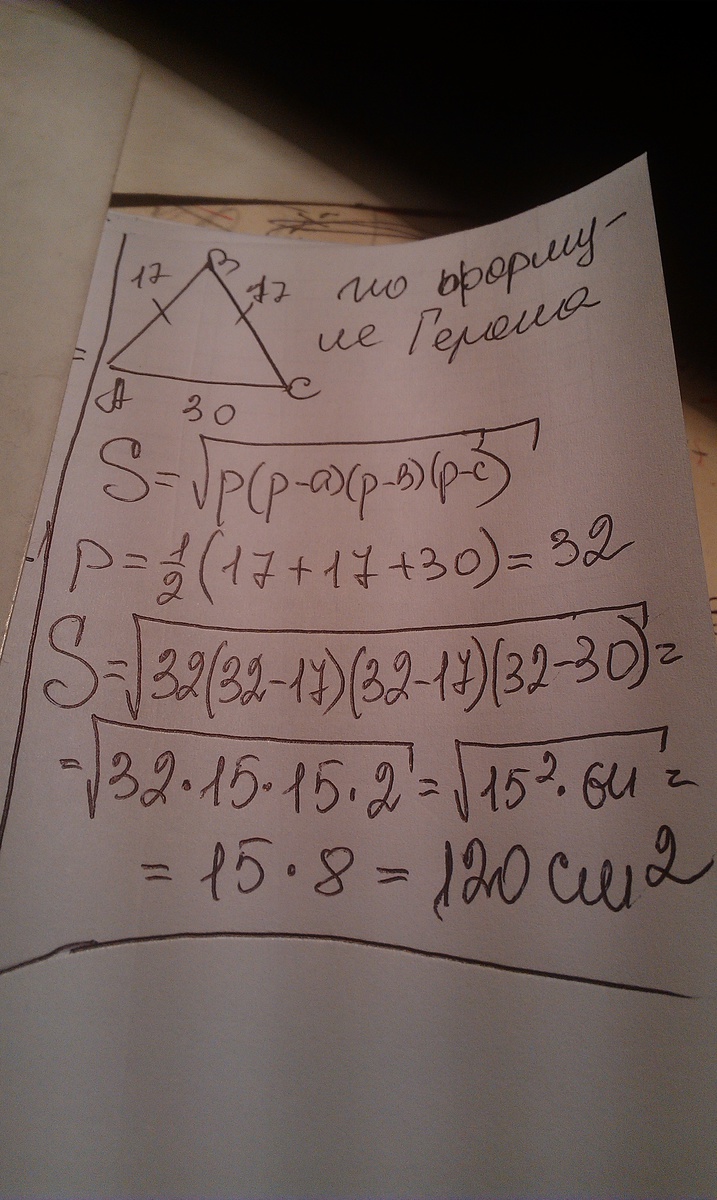 17 B 17 по форму-
ле Герона
A 30 C
S=√p(p-a)(p-в)(p-c)
p=½(17+17+30)=32
S=√32(32-17)(32-17)(32-30)=
=√32·15·15·2=√15²·64=
=15·8=120 см²